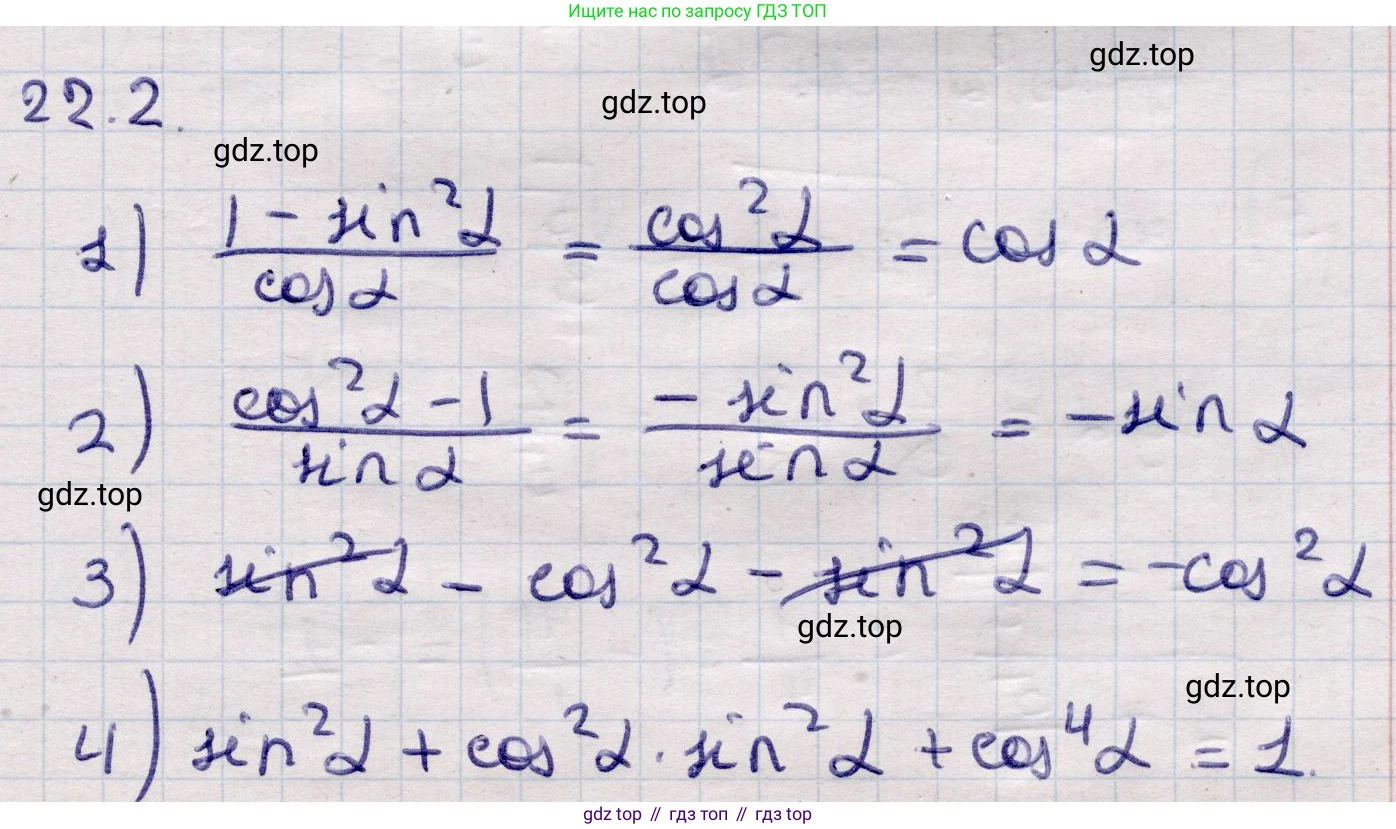 Ищите нас по запросу ГДЗ ТОП
gdz.top
22.2.
gdz.top
gdz.top
1) (1 - sin²α)/(cos α) = (cos²α)/(cos α) = cos α
2) (cos²α - 1)/(sin α) = (- sin²α)/(sin α) = - sin α
gdz.top
3) sin²α - cos²α - sin²α = -cos²α
gdz.top
gdz.top
4) sin²α + cos²α · sin²α + cos⁴α = 1.
gdz top // гдз топ // gdz top